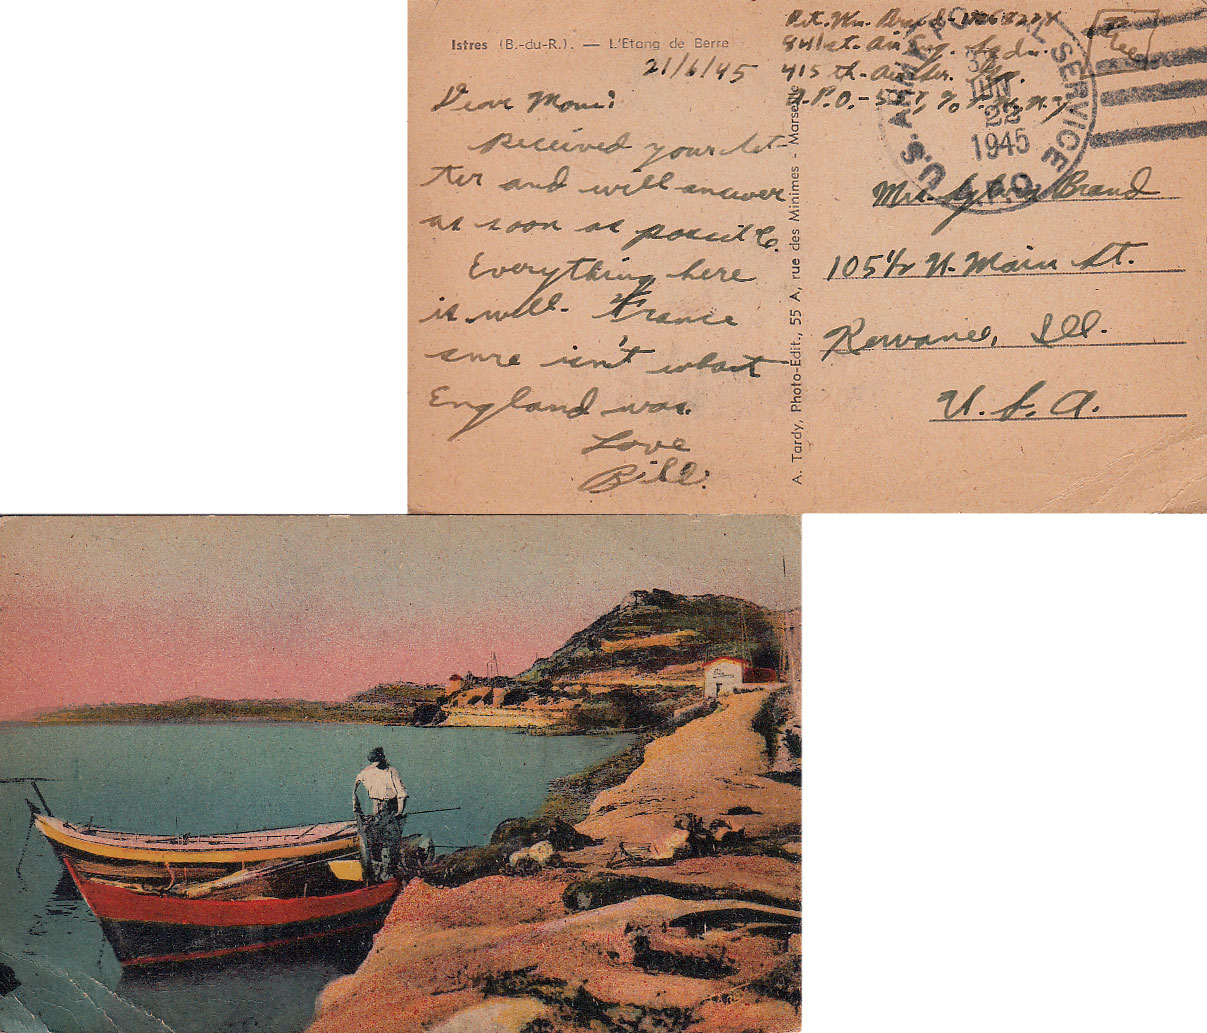 Istres (B.-du-R.). — L'Etang de Berre
21/6/45
Dear Mom:
Received your let-
ter and will answer
as soon as possible.
Everything here
is well. France
sure isn't what
England was.
Love
Bill.
A. Tardy, Photo-Edit., 55 A, rue des Minimes - Marseille
Pvt. Wm.
841st. Air
415th. Air
A.P.O.
Free
U.S. ARMY POSTAL SERVICE
A.P.O.
JUN
22
1945
Mrs. Brand
105½ N. Main St.
Kewanee, Ill.
U.S.A.